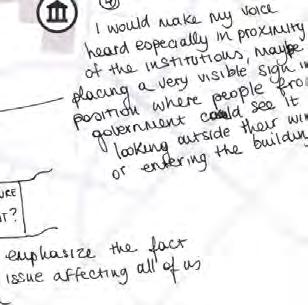 4
I would make my voice
heard especially in proximity
of the institutions, maybe
placing a very visible sign in
position where people from
government could see it
looking outside their
or entering the
URE
T?
emphasize the fact
issue affecting all of us